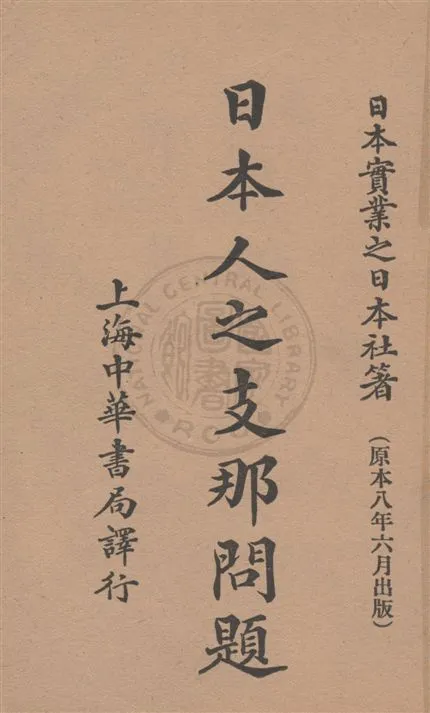 日本實業之日本社箸
(原本八年六月出版)
日本人之支那問題
上海中華書局譯行
NATIONAL CENTRAL LIBRARY